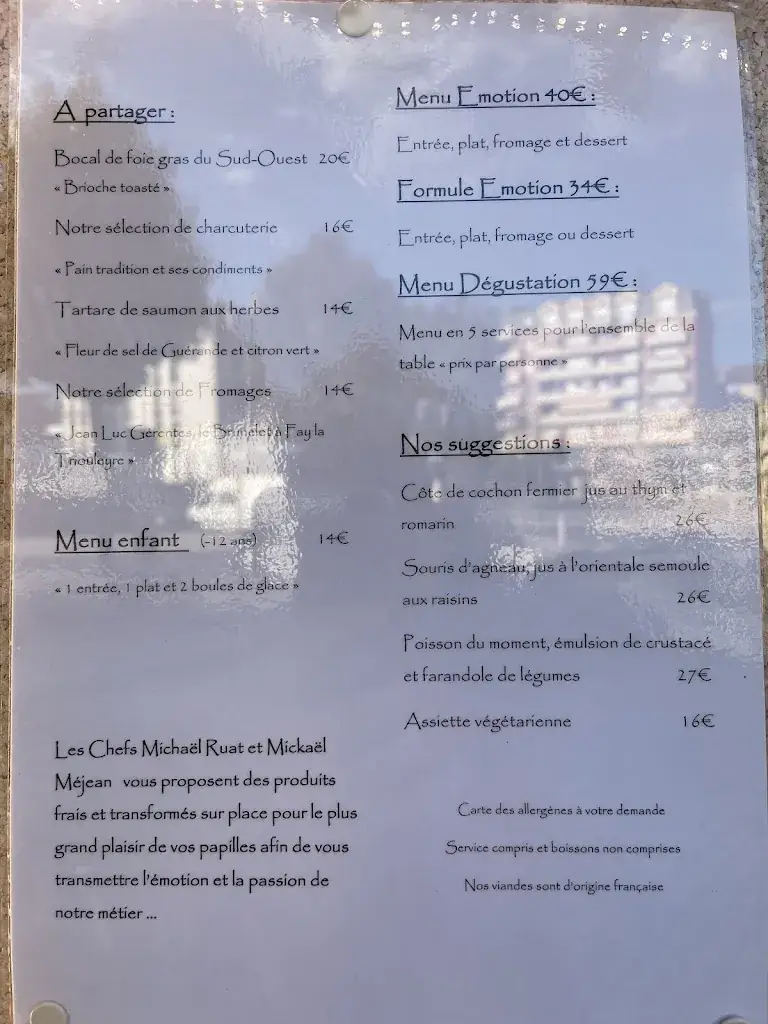 A partager :
Bocal de foie gras du Sud-Ouest 20€
« Brioche toasté »
Notre sélection de charcuterie 16€
« Pain tradition et ses condiments »
Tartare de saumon aux herbes 14€
« Fleur de sel de Guérande et citron vert »
Notre sélection de Fromages 14€
« Jean Luc Gérentes, le Brunelet à Fay la
Triouleyre »
Menu enfant (-12 ans) 14€
« 1 entrée, 1 plat et 2 boules de glace »
Les Chefs Michaël Ruat et Mickaël
Méjean vous proposent des produits
frais et transformés sur place pour le plus
grand plaisir de vos papilles afin de vous
transmettre l'émotion et la passion de
notre métier ...
Menu Emotion 40€ :
Entrée, plat, fromage et dessert
Formule Emotion 34€ :
Entrée, plat, fromage ou dessert
Menu Dégustation 59€ :
Menu en 5 services pour l'ensemble de la
table « prix par personne »
Nos suggestions :
Côte de cochon fermier jus au thym et
romarin 26€
Souris d'agneau, jus à l'orientale semoule
aux raisins 26€
Poisson du moment, émulsion de crustacé
et farandole de légumes 27€
Assiette végétarienne 16€
Carte des allergènes à votre demande
Service compris et boissons non comprises
Nos viandes sont d'origine française